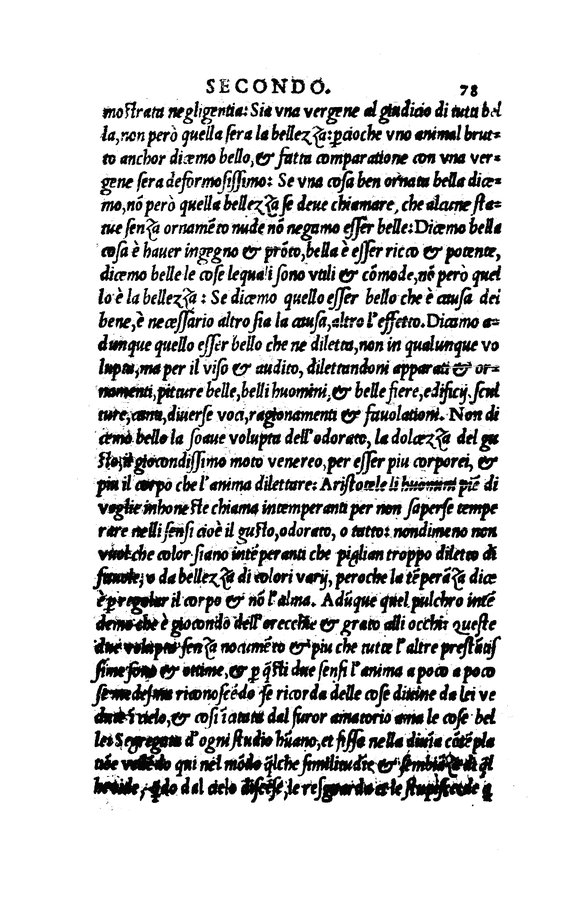 SECONDO. 78
mostrata negligentia: Sia vna vergene al giudicio di tutti bel
la, non però quella sera la bellezza: pcioche vno animal brut-
to anchor dicemo bello, & fatta comparatione con vna ver-
gene sera deformosissimo: Se vna cosa ben ornata bella dice-
mo, nõ però quella bellezza se deue chiamare, che alcune sta-
tue senza ornamẽto nude nõ negamo esser belle: Dicemo bella
cosa è hauer ingegno & prõto, bella è esser ricco & potente,
dicemo belle le cose lequali sono vtili & cõmode, nõ però quel
lo è la bellezza: Se dicemo quello esser bello che è causa del
bene, è necessario altro sia la causa, altro l'effetto. Dicamo a-
dunque quello esser bello che ne diletta, non in qualunque vo
lupta, ma per il viso & audito, dilettandoni apparati & or-
namenti, pitture belle, belli huomini, & belle fiere, edificij, scul
ture, canti, diuerse voci, ragionamenti & fauolationi. Non di
cemo bello la soaue volupta dell'odorato, la dolcezza del gu
sto, il giocondissimo moto venereo, per esser piu corporei, &
piu il corpo che l'anima dilettare: Aristotele li huomini piẽ di
voglie inhoneste chiama intemperanti per non saperse tempe
rare nelli sensi cioè il gusto, odorato, o tatto: nondimeno non
che color siano intẽperanti che piglian troppo diletto di
o da bellezza di colori varij, peroche la tẽperãza dice
è p regolar il corpo & nõ l'alma. Adũque quel pulchro intẽ
demo che è giocondo dell'orecchie & grato alli occhi: queste
due volupta senza nocumẽto & piu che tutte l'altre prestãtis
sime sono & ottime, & p q̃sti due sensi l'anima a poco a poco
se medesma riconoscẽdo se ricorda delle cose diuine da lei ve
dute ĩ cielo, & cosi ĩcitata dal furor amatorio ama le cose bel
le: Segregata d'ogni studio hũano, et fissa nella diuĩa cõtẽpla
tiõe vedẽdo qui nel mõdo q̃lche similitudie & sembiãza di q̃l
dal cielo discese, le resguarda et le stupisce